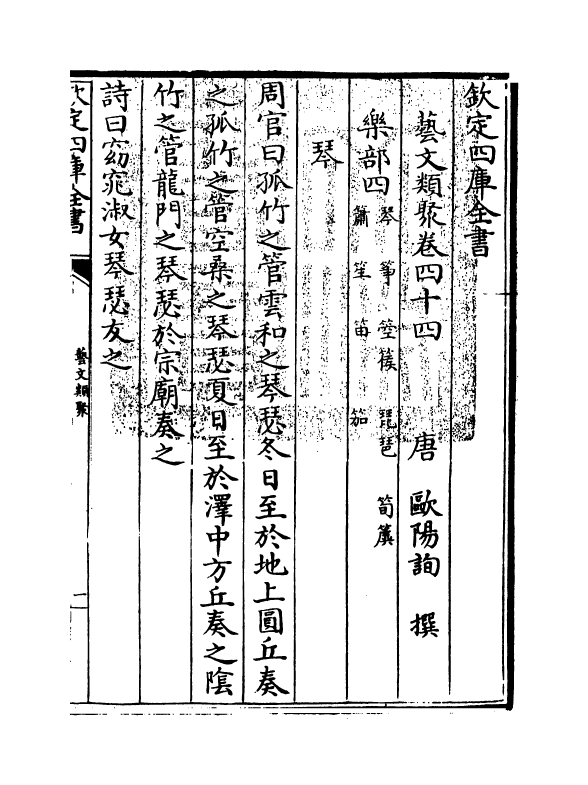 欽定四庫全書
藝文類聚卷四十四　唐　歐陽詢　撰
樂部四　琴　箏　箜篌　琵琶　筍簴
簫　笙　笛　笳
琴
周官曰孤竹之管雲和之琴瑟冬日至於地上圓丘奏
之孤竹之管空桑之琴瑟夏日至於澤中方丘奏之陰
竹之管龍門之琴瑟於宗廟奏之
詩曰窈窕淑女琴瑟友之
欽定四庫全書
藝文類聚